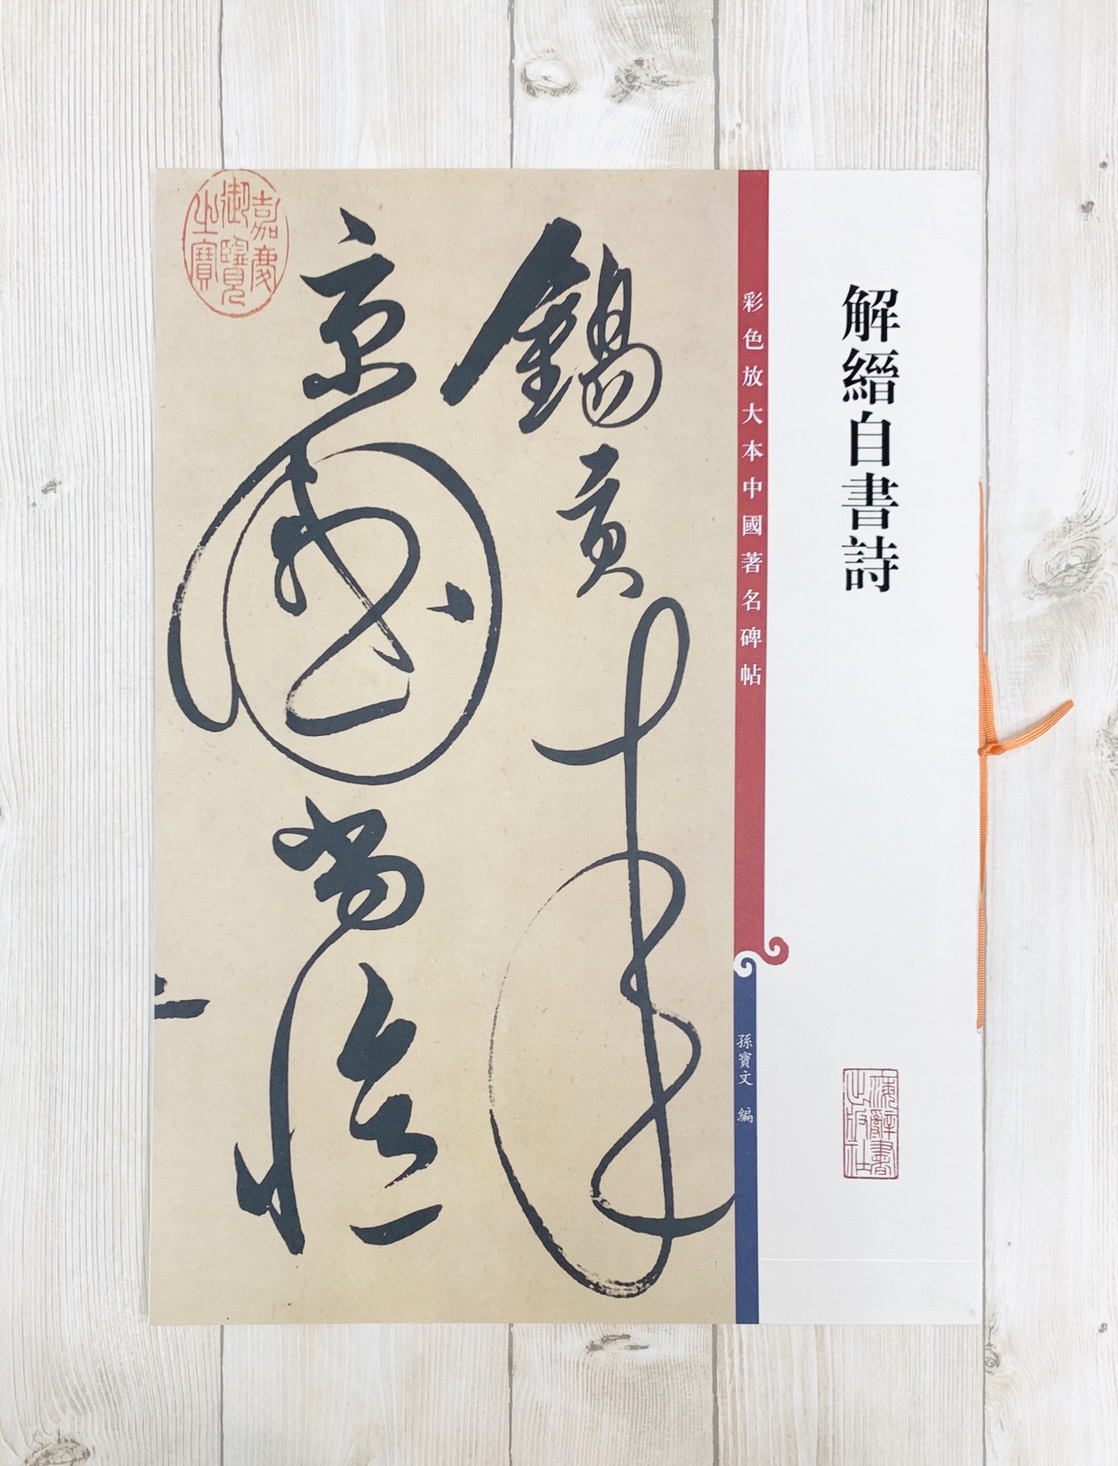 解縉自書詩
彩色放大本中國著名碑帖
孫寶文 編
上海辭書
出版社
錫貢來
京國尚憶
嘉慶
御覽
之寶